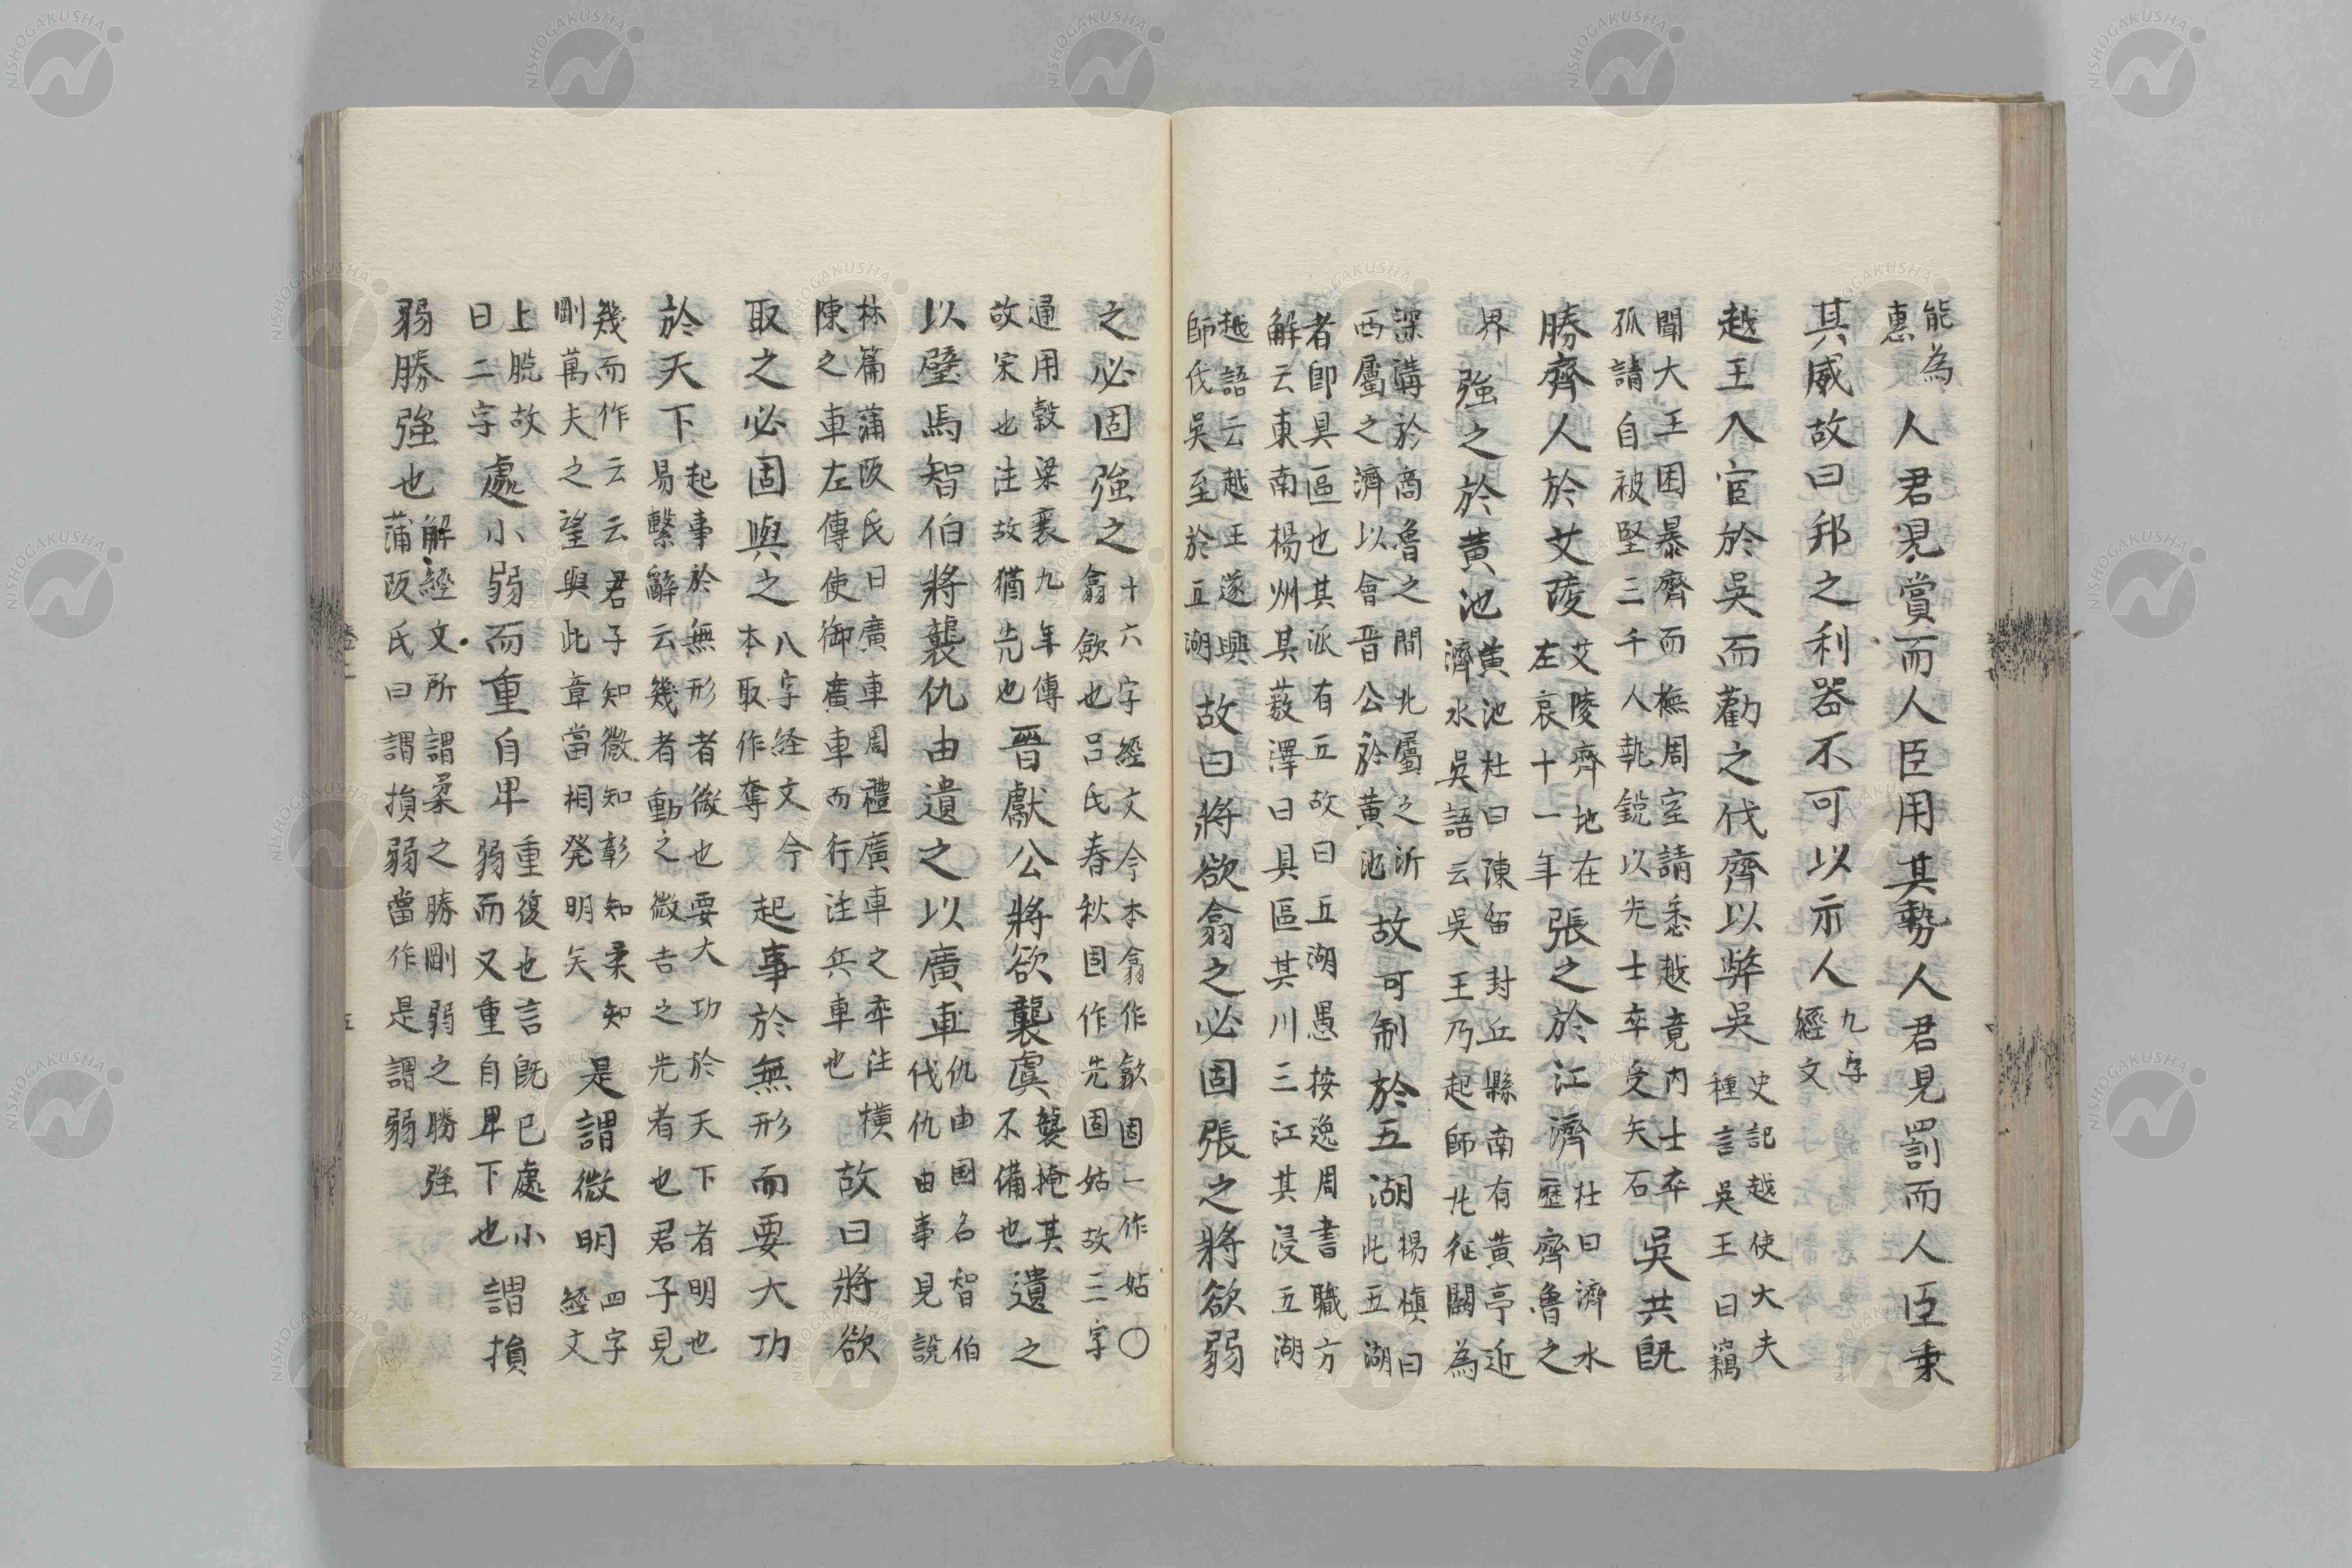 能為惠人君見賞而人臣用其勢人君見罰而人臣秉
其威故曰邦之利器不可以示人九字經文
越王入宦於吳而勸之伐齊以弊吳史記越使大夫種言吳王曰竊
聞大王困暴齊而撫周室請悉越竟內士卒孤請自被堅三千人執銳以先士卒受矢石吳共既
勝齊人於艾陵艾陵齊地在左哀十一年張之於江濟杜曰濟水歷齊魯之
界強之於黃池黃池杜曰陳留封丘縣南有黃亭近濟水吳語云吳王乃起師北征闕為
深溝於商魯之間北屬之沂西屬之濟以會晋公於黃池故可制於五湖楊慎曰此五湖
者即具區也其派有五故曰五湖愚按逸周書職方解云東南楊州其薮澤曰具區其川三江其浸五湖
越語云越王遂興師伐吳至於五湖故曰將欲翕之必固張之將欲弱
之必固強之十六字經文今本翕作歙固一作姑〇翕歛也呂氏春秋固作先固姑故三字
通用穀梁襄九年傳故宋也注故猶先也晉獻公將欲襲虞襲掩其不備也遺之
以璧馬智伯將襲仇由遺之以廣車仇由国名智伯伐仇由事見說
林篇蒲阪氏曰廣車周禮廣車之萃注橫陳之車左傳使御廣車而行注兵車也故曰將欲
取之必固與之八字経文今本取作奪起事於無形而要大功
於天下起事於無形者微也要大功於天下者明也易繫辭云幾者動之微吉之先者也君子見
幾而作云云君子知微知彰知柔知剛萬夫之望與此章當相発明矣是謂微明四字經文
上脱故曰二字處小弱而重自卑重復也言既已處小弱而又重自卑下也謂損
弱勝強也解經文所謂柔之勝剛弱之勝強蒲阪氏曰謂損弱當作是謂弱
五
NISHOGAKUSHA